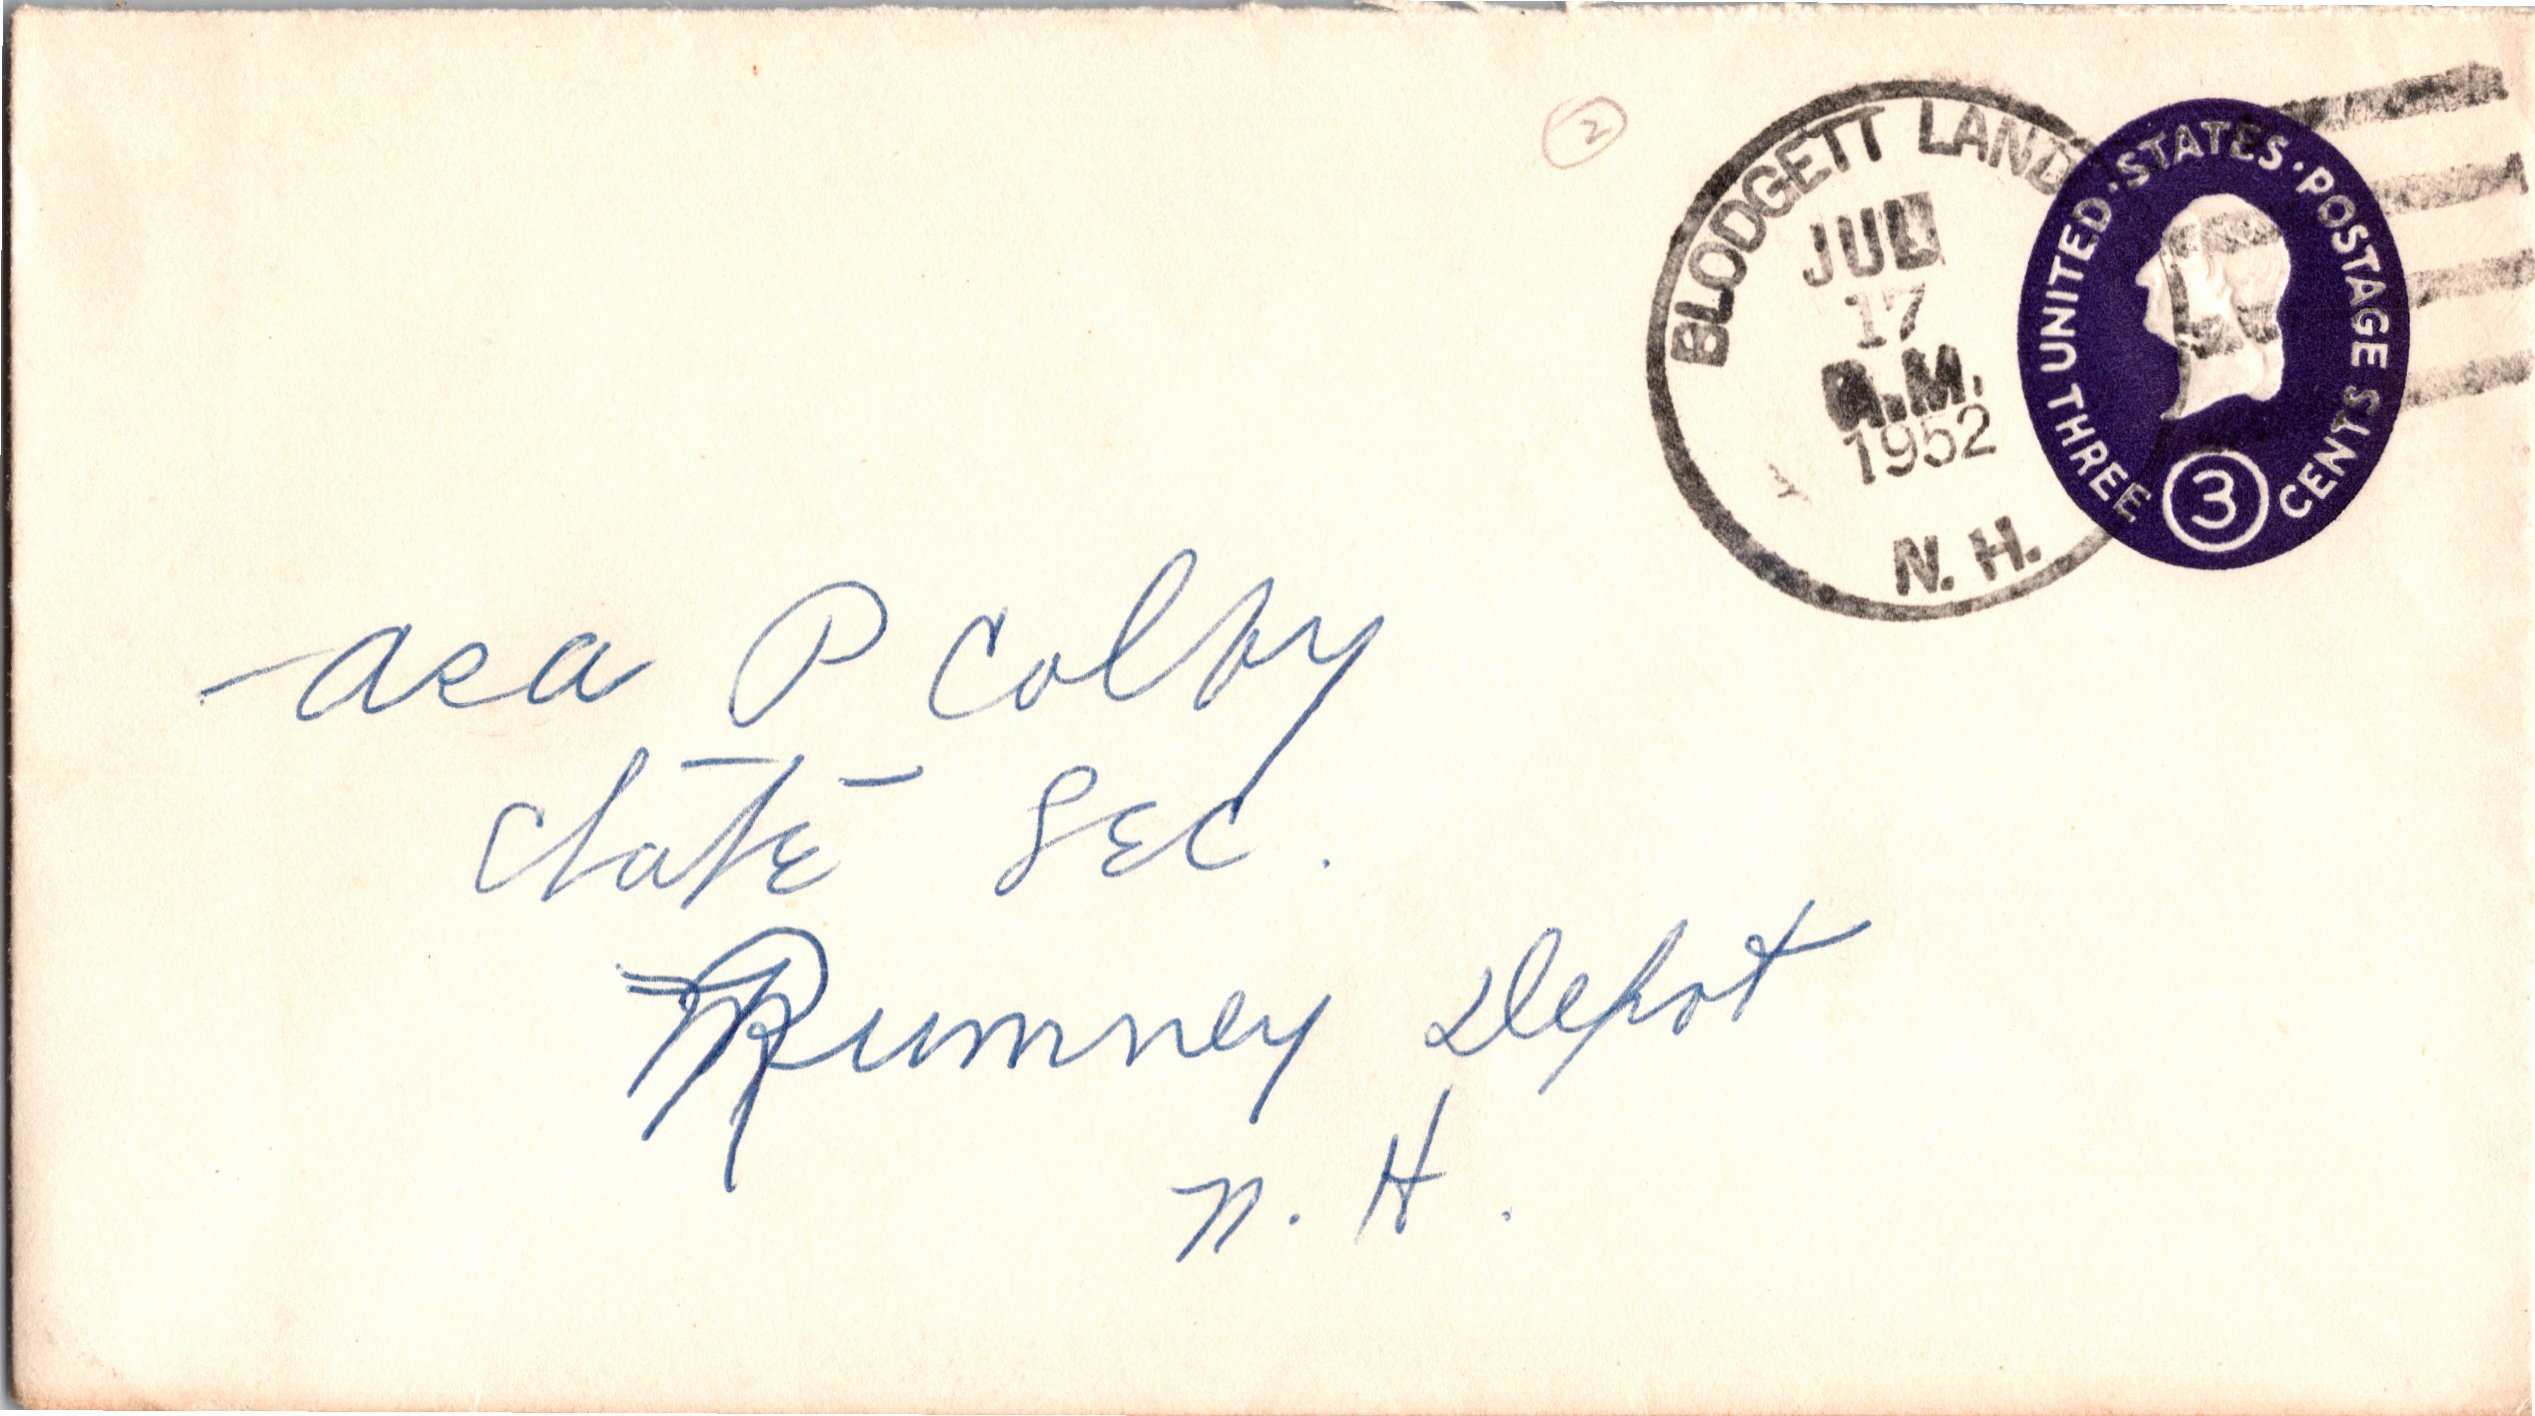 2
BLODGETT LAND
JUL
17
A.M.
1952
N. H.
UNITED · STATES · POSTAGE
THREE 3 CENTS
Asa P Colby
State Sec.
Rumney Depot
N. H.